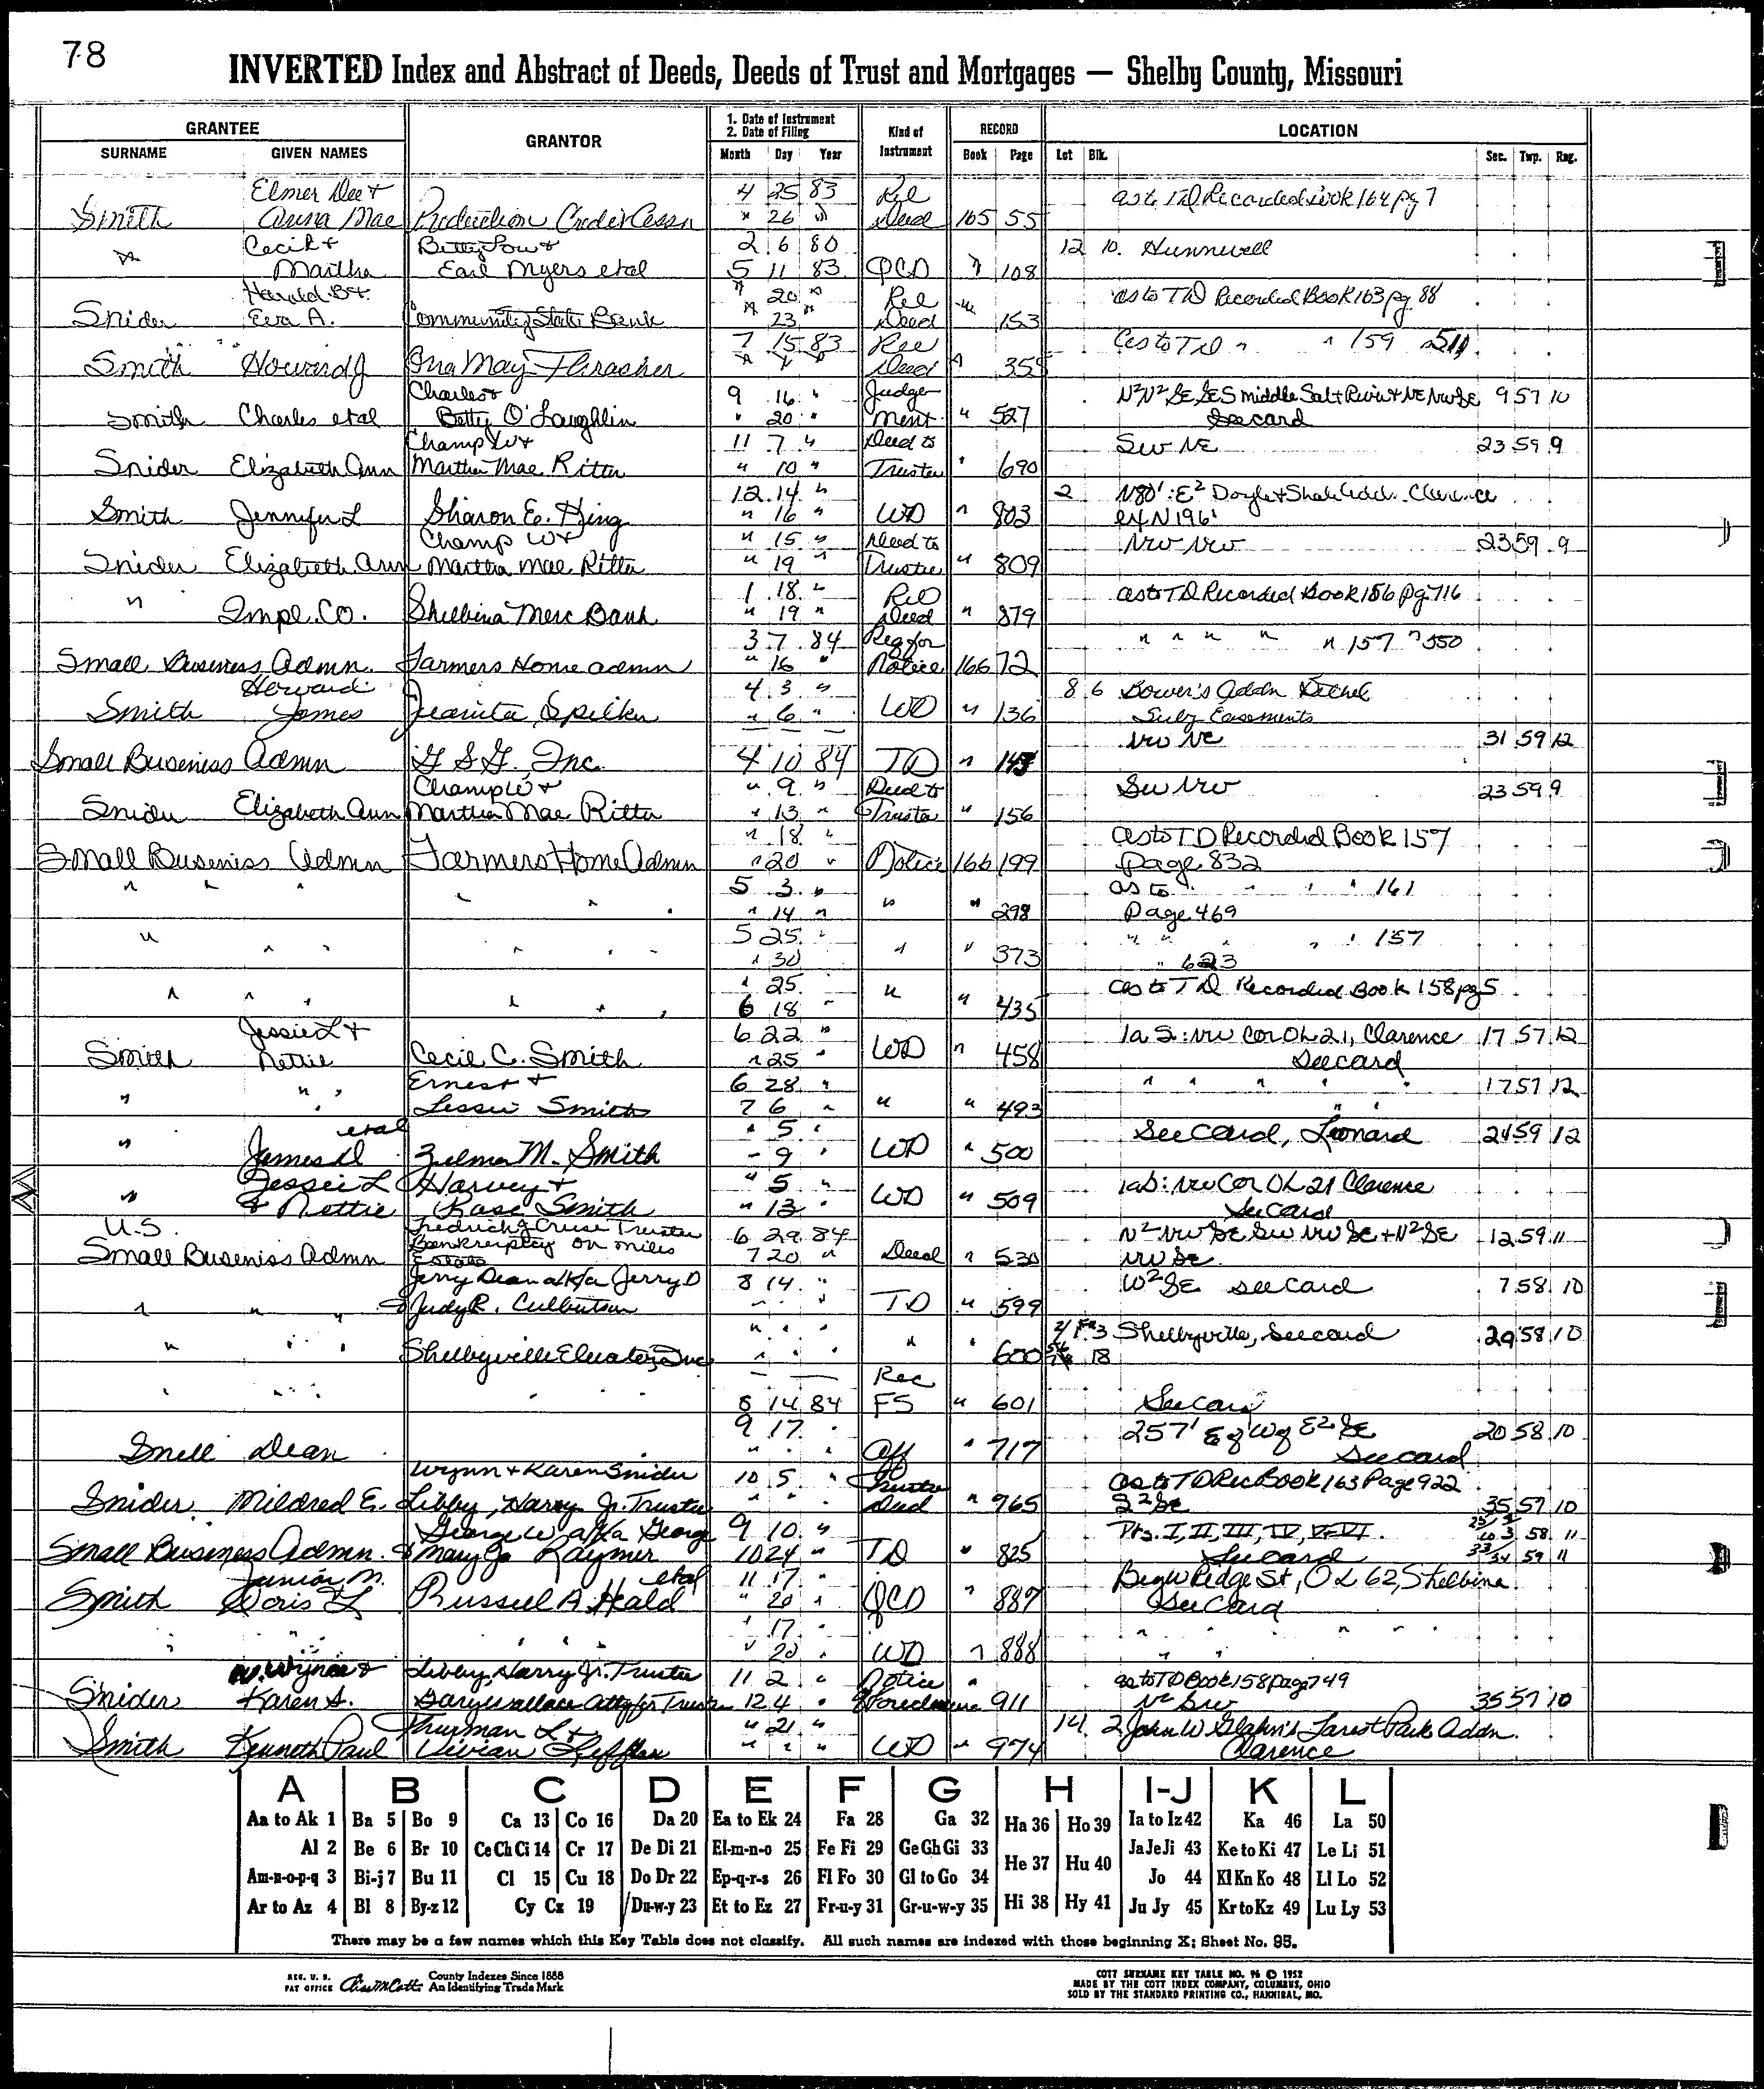 78
INVERTED Index and Abstract of Deeds, Deeds of Trust and Mortgages — Shelby County, Missouri
GRANTEE GRANTOR 1. Date of Instrument 2. Date of Filing Kind of Instrument RECORD LOCATION
SURNAME GIVEN NAMES Month Day Year Book Page Lot Blk. Sec. Twp. Rng.
Elmer Dee + 4 25 83 Rel as to TD Recorded Book 164 pg 7
Smith Anna Mae Production Credit Assn " 26 " Deed 165 55
Cecil + Betty Lou + 2 6 80 12 10. Hunnewell
" Martha Earl Myers etal 5 11 83 QCD " 108
Harold B + " 20 " Rel as to TD Recorded Book 163 pg 88
Snider Eva A. Community State Bank " 23 " Deed " 153
7 15 83 Rel as to TD " " 159 511
Smith Howard J Ina May Thrasher " " " Deed " 355
Charles + 9 16 " Judge- N²N² SE SE S middle Salt River + NE NW SE 9 57 10
Smith Charles etal Betty O'Laughlin " 20 " ment " 527 See card
Champ W + 11 7 " Deed to SW NE 23 59 9
Snider Elizabeth Ann Martha Mae Ritter " 10 " Trustee " 690
12 14 " 2 N80': E² Doyle + Shale Addn. Clarence
Smith Jennifer L Sharon E. King " 16 " WD " 803 ex N196'
Champ W + " 15 " Deed to NW NW 23 59 9
Snider Elizabeth Ann Martha Mae Ritter " 19 " Trustee " 809
1 18 " Rel as to TD Recorded Book 156 pg 716
" Impl. Co. Shelbina Merc Bank " 19 " Deed " 879
3 7 84 Req for " " " " " 157 " 550
Small Business Admn. Farmers Home Admn " 16 " Notice 166 72
Howard 4 3 " 8 6 Bower's Addn Bethel
Smith James Juanita Spilker " 6 " WD " 136 Subj Easements
NW NE 31 59 12
Small Business Admn G S G, Inc. 4 10 84 TD "
Champ W + " 9 " Deed to SW NW 23 59 9
Snider Elizabeth Ann Martha Mae Ritter " 13 " Trustee " 156
" 18 " as to TD Recorded Book 157
Small Business Admn Farmers Home Admn " 20 " Notice 166 199 Page 832
" " " 5 3 " as to " " " " 161
" " " " 14 " " " 298 Page 469
" " " 5 25 " " " " " 157
" " " " 30 " " 373 " 623
" " " " 25 as to TD Recorded Book 158 pg 5
" " " 6 18 " " " 435
Jessie L + 6 22 " 1a S: NW Cor OL 21, Clarence 17 57 12
Smith Nettie Cecil C. Smith " 25 " WD " 458 See card
Ernest + 6 28 " " " " " " 17 57 12
" " " Lessie Smith 7 6 " " " 493 " "
etal " 5 " See Card, Leonard 24 59 12
" James D Zelma M. Smith " 9 " WD " 500
Jessie L Harvey + " 5 " 1aS: NW Cor OL 21 Clarence
" + Nettie Rose Smith " 13 " WD " 509 See Card
U.S. Fredrich J Cruse Trustee 6 29 84 N² NW SE SW NW SE + N² SE 12 59 11
Small Business Admn Bankruptcy on Miles Estate 7 20 " Deed " 530 NW SE
Jerry Dean a/k/a Jerry D 8 14 " W² SE see card 7 58 10
" " " + Judy R. Culbertson " " " TD " 599
" " " " " " " Shelbyville, See card 29 58 10
Shelbyville Elevator, Inc " " " " 600 18
Rec
" " " " " 8 14 84 FS " 601 See Card
9 17 " 257' E of W of E² SE 20 58 10
Snell Dean " " " Aff " 717 See card
Wynn + Karen Snider 10 5 " Trustee as to TD Rec Book 163 Page 922
Snider Mildred E. Libby, Harry Jr. Trustee " " " Deed " 765 S² SE 35 57 10
George W a/k/a George 9 10 " Pts. I, II, III, IV, V + VI 3 58 11
Small Business Admn. + Mary Jo Raymer 10 24 " TD " 825 See card 33/34 59 11
Junior M. etal 11 17 " Beg W Ridge St, OL 62, Shelbina
Smith Doris L Russell A. Heald " 20 " QCD " 887 See Card
" " " " " " " 17 " " " " " "
" 20 " WD " 888 " "
W. Wynn + Libby, Harry Jr. Trustee 11 2 " Notice " as to TD Book 158 page 749
Snider Karen S. Gary Wallace Atty for Trustee 12 4 " Foreclosure 911 NE SW 35 57 10
Thurman L + " 21 " 14 2 John W Glahn's Forest Park Addn.
Smith Kenneth Paul Vivian Leffler " " " WD " 974 Clarence
A B C D E F G H I-J K L
Aa to Ak 1 Ba 5 Bo 9 Ca 13 Co 16 Da 20 Ea to Ek 24 Fa 28 Ga 32 Ha 36 Ho 39 Ia to Iz 42 Ka 46 La 50
Al 2 Be 6 Br 10 Ce Ch Ci 14 Cr 17 De Di 21 El-m-n-o 25 Fe Fi 29 Ge Gh Gi 33 He 37 Hu 40 Ja Je Ji 43 Ke to Ki 47 Le Li 51
Am-n-o-p-q 3 Bi-j 7 Bu 11 Cl 15 Cu 18 Do Dr 22 Ep-q-r-s 26 Fl Fo 30 Gl to Go 34 Jo 44 Kl Kn Ko 48 Ll Lo 52
Ar to Az 4 Bl 8 By-z 12 Cy Cz 19 Du-w-y 23 Et to Ez 27 Fr-u-y 31 Gr-u-w-y 35 Hi 38 Hy 41 Ju Jy 45 Kr to Kz 49 Lu Ly 53
There may be a few names which this Key Table does not classify. All such names are indexed with those beginning X; Sheet No. 95.
REG. U. S. PAT OFFICE County Indexes Since 1888 An Identifying Trade Mark
COTT SURNAME KEY TABLE NO. 96 © 1952
MADE BY THE COTT INDEX COMPANY, COLUMBUS, OHIO
SOLD BY THE STANDARD PRINTING CO., HANNIBAL, MO.